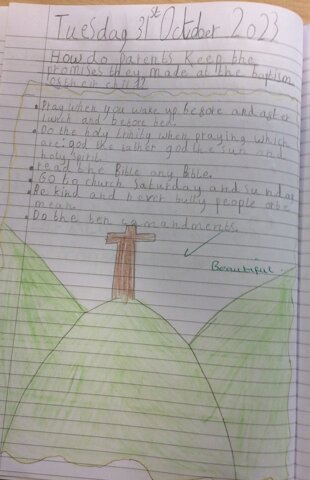 Tuesday 31st October 2023
How do parents keep the
promises they made at the baptism
of their child?
• Pray when you wake up before and after
lunch and before bed.
• Do the holy trinity when praying which
are: god the father god the sun and
holy Spirit.
• read the Bible any Bible.
• Go to church Saturday and sunday
• Be kind and never bully people or be
mean.
• Do the ten commandments.
Beautiful.